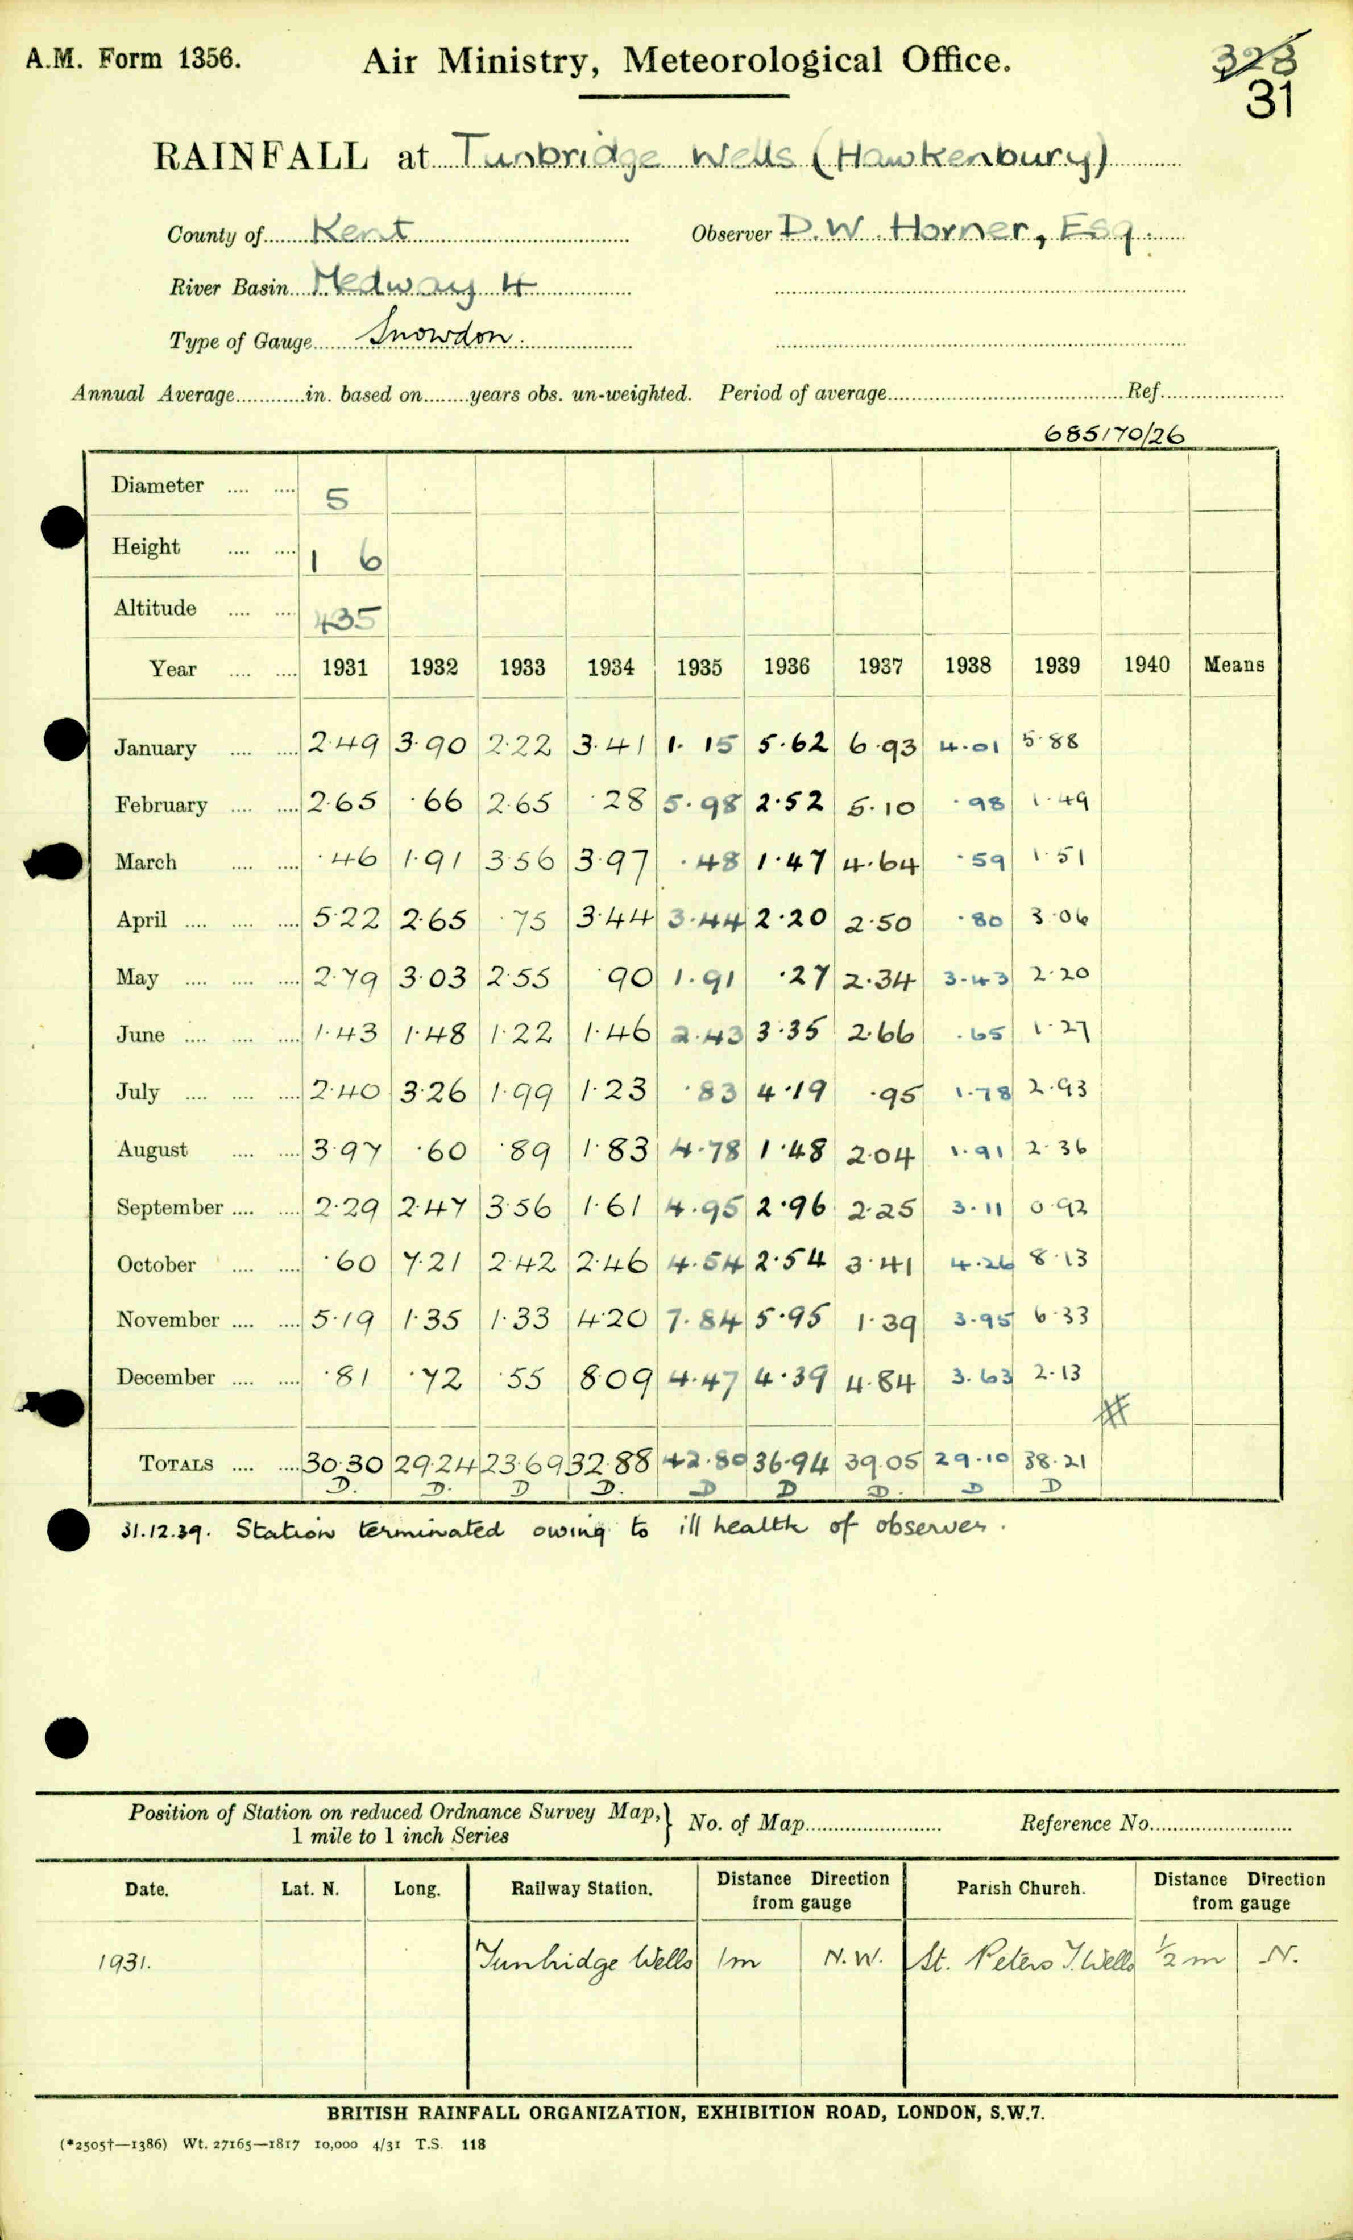 A.M. Form 1356. Air Ministry, Meteorological Office. 323
31
RAINFALL at Tunbridge Wells (Hawkenbury)
County of Kent Observer D.W. Horner, Esq.
River Basin Medway 4
Type of Gauge Snowdon.
Annual Average in. based on years obs. un-weighted. Period of average Ref.
685170/26
Diameter 5
Height 1 6
Altitude 435
Year 1931 1932 1933 1934 1935 1936 1937 1938 1939 1940 Means
January 2.49 3.90 2.22 3.41 1.15 5.62 6.93 4.01 5.88
February 2.65 .66 2.65 .28 5.98 2.52 5.10 .98 1.49
March .46 1.91 3.56 3.97 .48 1.47 4.64 .59 1.51
April 5.22 2.65 .75 3.44 3.44 2.20 2.50 .80 3.06
May 2.79 3.03 2.55 .90 1.91 .27 2.34 3.43 2.20
June 1.43 1.48 1.22 1.46 2.43 3.35 2.66 .65 1.27
July 2.40 3.26 1.99 1.23 .83 4.19 .95 1.78 2.93
August 3.97 .60 .89 1.83 4.78 1.48 2.04 1.91 2.36
September 2.29 2.47 3.56 1.61 4.95 2.96 2.25 3.11 0.92
October .60 7.21 2.42 2.46 4.54 2.54 3.41 4.26 8.13
November 5.19 1.35 1.33 4.20 7.84 5.95 1.39 3.95 6.33
December .81 .72 .55 8.09 4.47 4.39 4.84 3.63 2.13
#
TOTALS 30.30 29.24 23.69 32.88 42.80 36.94 39.05 29.10 38.21
D. D. D D. D D D. D D
31.12.39. Station terminated owing to ill health of observer.
Position of Station on reduced Ordnance Survey Map, } No. of Map Reference No.
1 mile to 1 inch Series
Date. Lat. N. Long. Railway Station. Distance Direction from gauge Parish Church. Distance Direction from gauge
1931. Tunbridge Wells 1m N.W. St. Peters T. Wells ½ m N.
BRITISH RAINFALL ORGANIZATION, EXHIBITION ROAD, LONDON, S.W.7.
(*2505†—1386) Wt. 27165—1817 10,000 4/31 T.S. 118